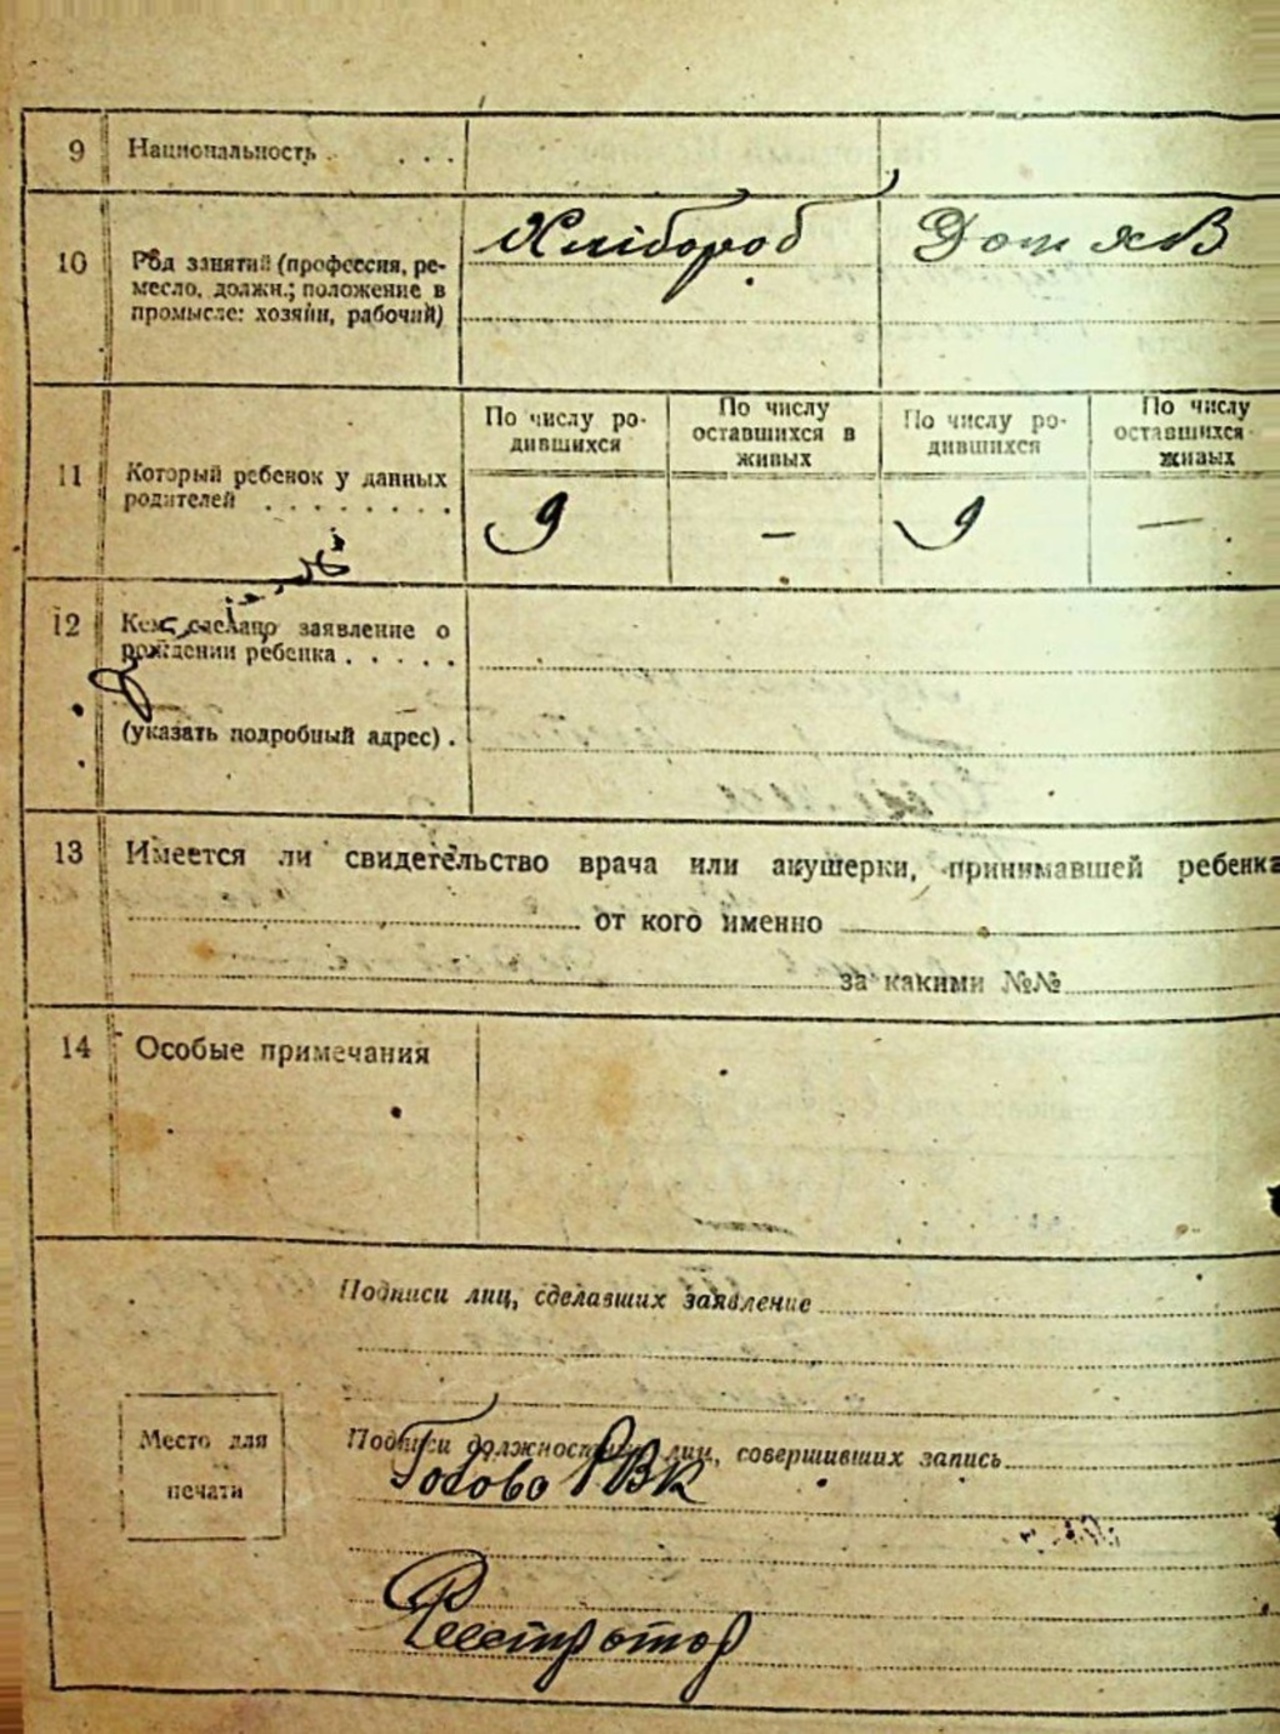 9 Национальность . . . .
10 Род занятий (профессия, ре-
месло, должн.; положение в
промысле: хозяин, рабочий)
Хлібороб
Дом хаз
11 Который ребенок у данных
родителей . . . . . . . .
По числу ро-
дившихся
По числу
оставшихся в
живых
По числу ро-
дившихся
По числу
оставшихся
живых
9 — 9 —
12 Кем сделано заявление о
рождении ребенка . . . . .
(указать подробный адрес) .
13 Имеется ли свидетельство врача или акушерки, принимавшей ребенка
от кого именно
за какими №№
14 Особые примечания
Подписи лиц, сделавших заявление
Место для
печати
Подписи должностных лиц, совершивших запись
Голова РВК
Реєстратор